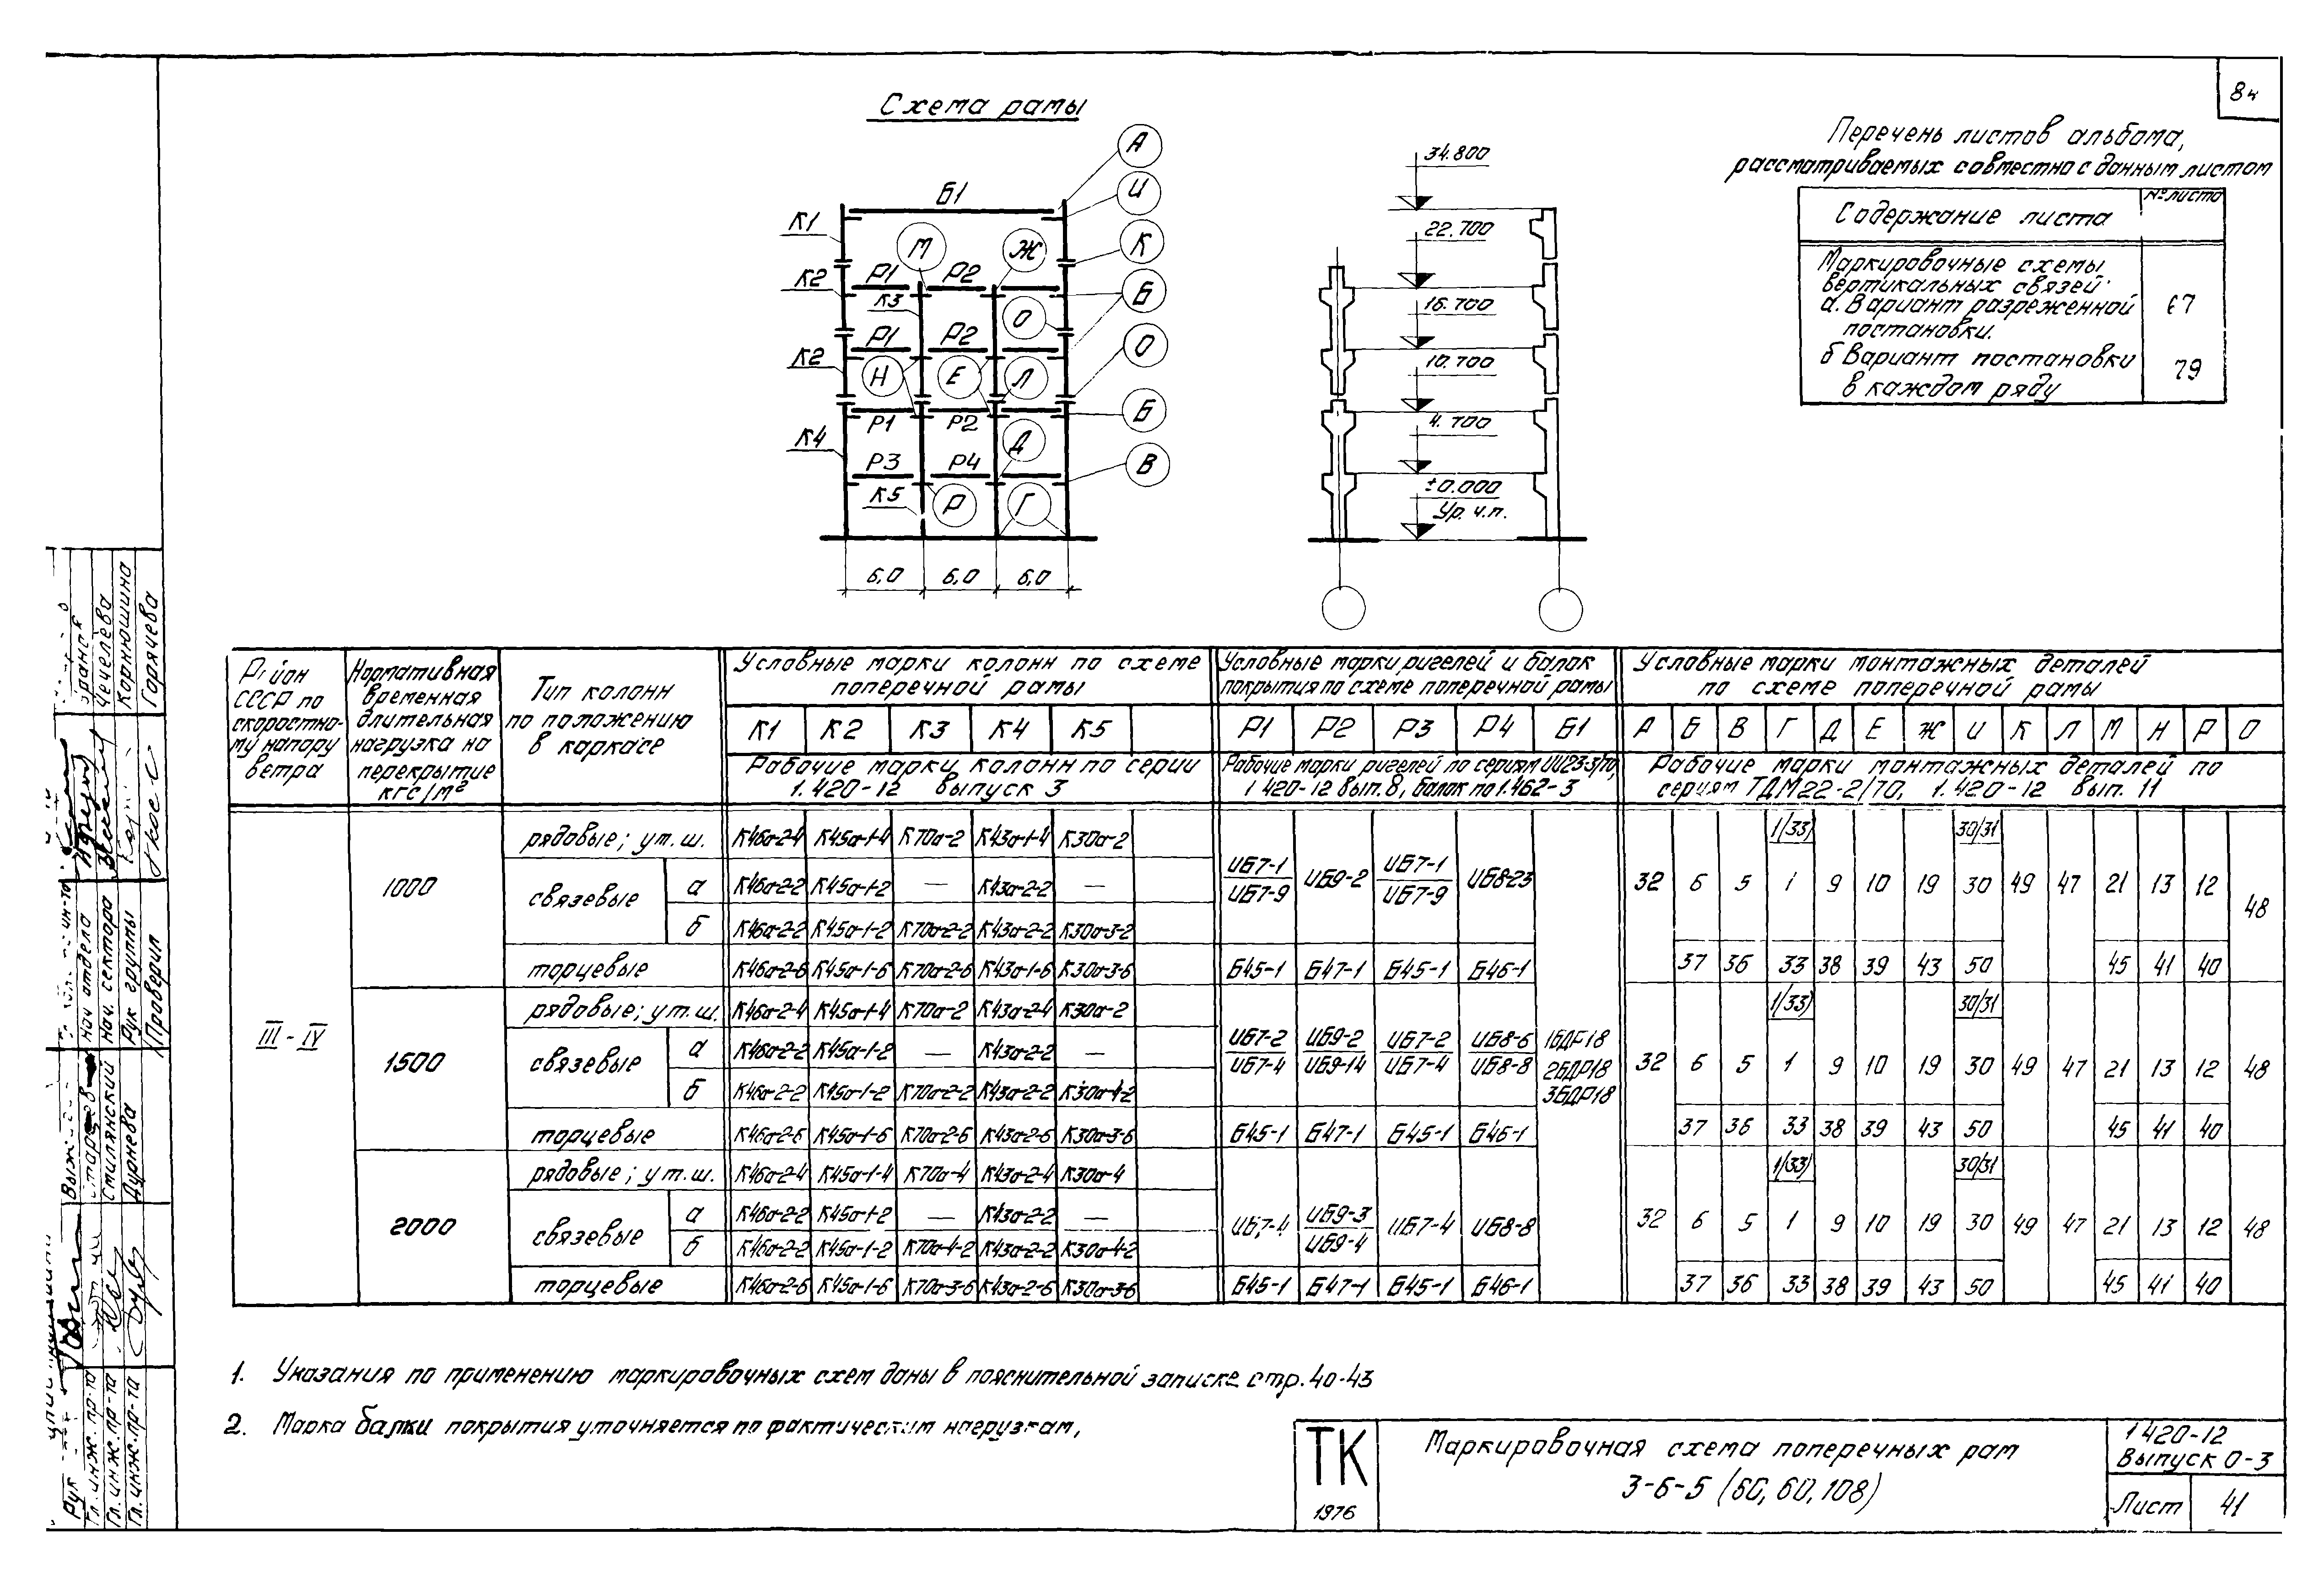 84
Схема рамы
А
И
К
Б
О
Б
В
Б1
М
Ж
О
Н
Е
Л
Д
Р
Г
К1
К2
К2
К4
Р1 Р2
К3
Р1 Р2
Р1 Р2
Р3 Р4
К5
6,0 6,0 6,0
34.800
22.700
16.700
10.700
4.700
±0.000
Ур. ч.п.
Перечень листов альбома,
рассматриваемых совместно с данным листом
Содержание листа № листа
Маркировочные схемы
вертикальных связей
а. Вариант разреженной 67
постановки.
б Вариант постановки 79
в каждом ряду
Район СССР по скоростно-му напору ветра
Нормативная временная длительная нагрузка на перекрытие кгс/м²
Тип колонн по положению в каркасе
Условные марки колонн по схеме поперечной рамы
К1 К2 К3 К4 К5
Рабочие марки колонн по серии 1.420-12 выпуск 3
Условные марки ригелей и балок покрытия по схеме поперечной рамы
Р1 Р2 Р3 Р4 Б1
Рабочие марки ригелей по сериям ИИ23-3/70, 1 420-12 вып. 8, балок по 1.462-3
Условные марки монтажных деталей по схеме поперечной рамы
А Б В Г Д Е Ж И К Л М Н Р О
Рабочие марки монтажных деталей по сериям ТДМ22-2/70, 1.420-12 вып. 11
III-IV
1000
рядовые; у т.ш. К46а-2-4 К45а-1-4 К70а-2 К43а-1-4 К30а-2
связевые а К46а-2-2 К45а-1-2 — К43а-2-2 —
б К46а-2-2 К45а-1-2 К70а-2-2 К43а-2-2 К30а-3-2
торцевые К46а-2-6 К45а-1-6 К70а-2-6 К43а-1-6 К30а-3-6
ИБ7-1/ИБ7-9 ИБ9-2 ИБ7-1/ИБ7-9 ИБ8-23
Б45-1 Б47-1 Б45-1 Б46-1
1(33) 30/31
32 6 5 1 9 10 19 30 49 47 21 13 12 48
37 36 33 38 39 43 50 45 41 40
1500
рядовые; у т.ш. К46а-2-4 К45а-1-4 К70а-2 К43а-2-4 К30а-2
связевые а К46а-2-2 К45а-1-2 — К43а-2-2 —
б К46а-2-2 К45а-1-2 К70а-2-2 К43а-2-2 К30а-4-2
торцевые К46а-2-6 К45а-1-6 К70а-2-6 К43а-2-6 К30а-3-6
ИБ7-2/ИБ7-4 ИБ9-2/ИБ9-14 ИБ7-2/ИБ7-4 ИБ8-6/ИБ8-8
1БДР18
2БДР18
3БДР18
Б45-1 Б47-1 Б45-1 Б46-1
1(33) 30/31
32 6 5 1 9 10 19 30 49 47 21 13 12 48
37 36 33 38 39 43 50 45 41 40
2000
рядовые; у т.ш. К46а-2-4 К45а-1-4 К70а-4 К43а-2-4 К30а-4
связевые а К46а-2-2 К45а-1-2 — К43а-2-2 —
б К46а-2-2 К45а-1-2 К70а-4-2 К43а-2-2 К30а-4-2
торцевые К46а-2-6 К45а-1-6 К70а-3-6 К43а-2-6 К30а-3-6
ИБ7-4 ИБ9-3/ИБ9-4 ИБ7-4 ИБ8-8
Б45-1 Б47-1 Б45-1 Б46-1
1(33) 30/31
32 6 5 1 9 10 19 30 49 47 21 13 12 48
37 36 33 38 39 43 50 45 41 40
1. Указания по применению маркировочных схем даны в пояснительной записке стр. 40-43
2. Марка балки покрытия уточняется по фактическим нагрузкам,
ТК
1976
Маркировочная схема поперечных рам
3-6-5 (60, 60, 108)
1 420-12
Выпуск 0-3
Лист 41
Чечелёва
Корнюшина
Горячева
Нач отдела
Нач. сектора
Рук группы
Проверил
Смилянский
Дурнева
Гл. инж. пр-та
Гл. инж. пр-та
Гл. инж. пр-та